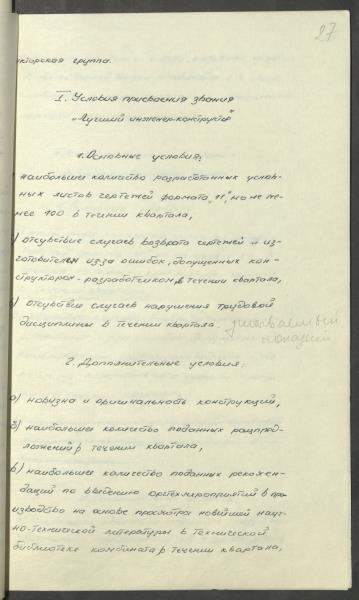 27
кторская группа.
I. Условия присвоения звания
„Лучший инженер-конструктор"
1. Основные условия:
наибольшее количество разработанных услов-
ных листов чертежей формата „11", но не ме-
нее 100 в течении квартала,
) отсутствие случаев возврата чертежей и из-
готовителем из-за ошибок, допущенных кон-
структором-разработчиком, в течении квартала,
) отсутствие случаев нарушения трудовой
дисциплины в течении квартала.
2. Дополнительные условия:
а) новизна и оригинальность конструкций,
б) наибольшее количество поданных рацпред-
ложений в течении квартала,
в) наибольшее количество поданных рекомен-
даций по введению оргтехмероприятий в про
изводство на основе просмотра новейшей науч-
но-технической литературы в технической
библиотеке комбината в течении квартала,